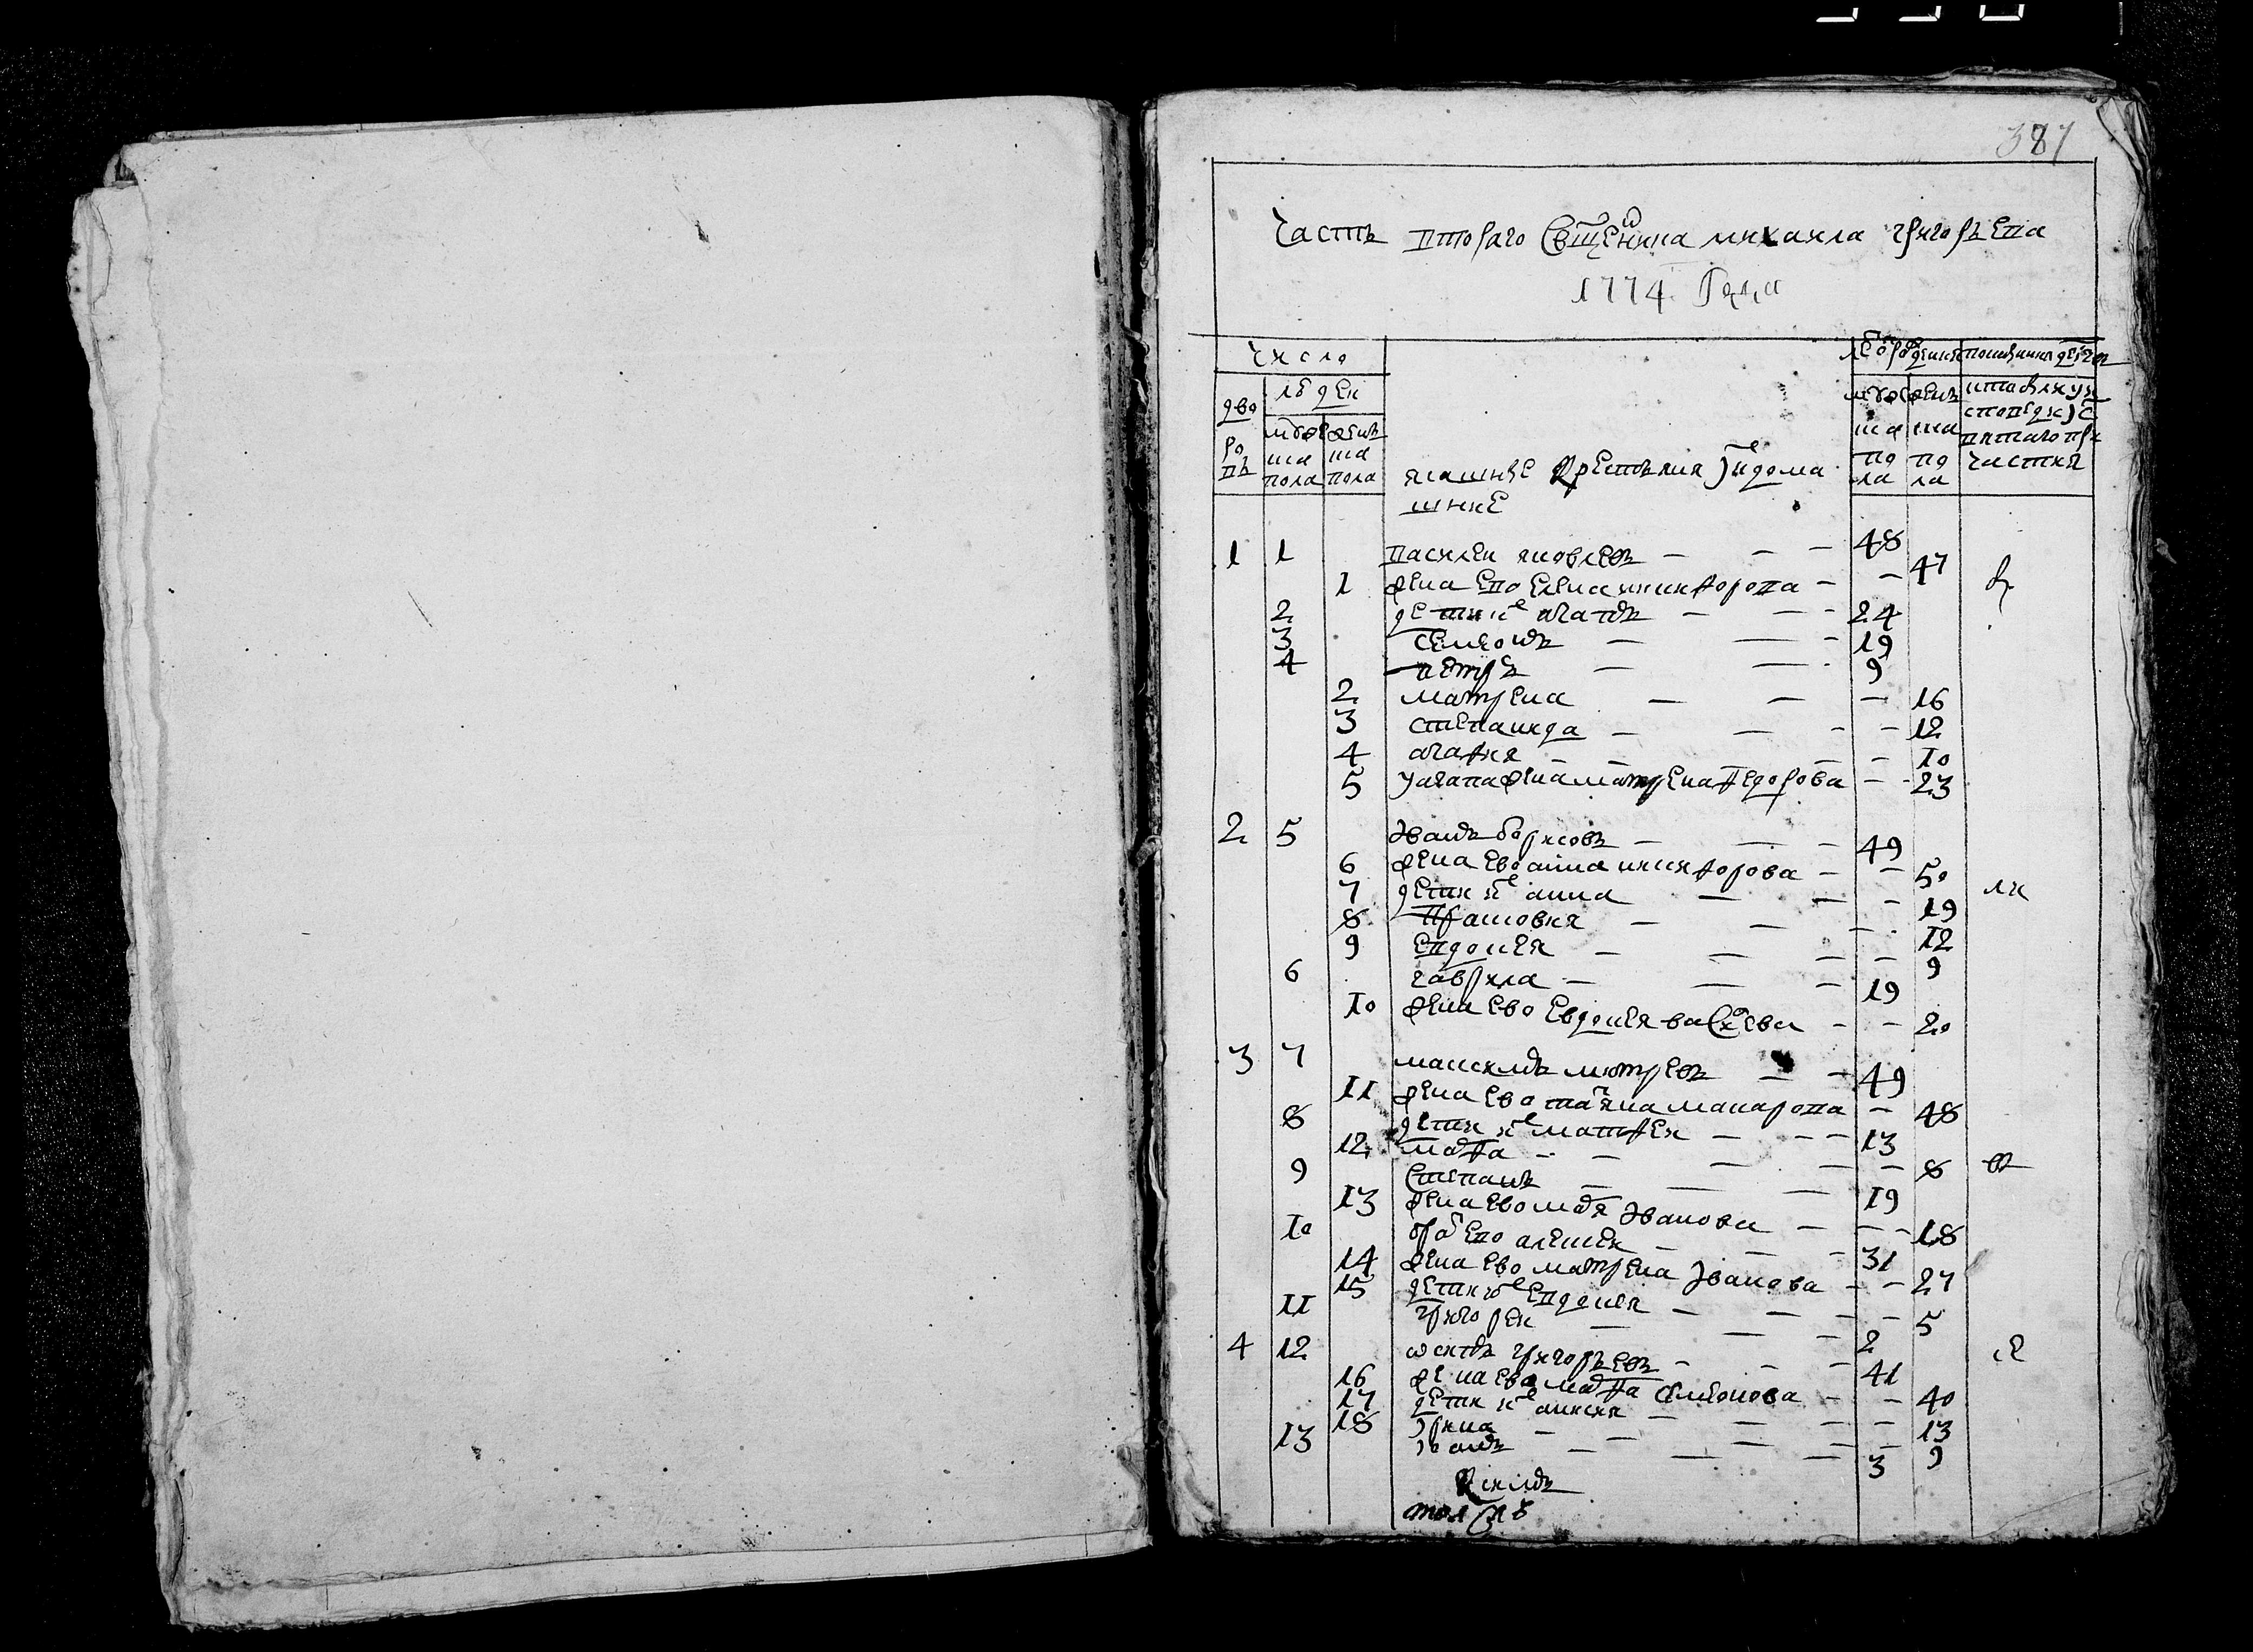 387
Часть второго священника михаила григорьева
1774 Года
Число
дво ро въ
людеи
мужеска пола
женска пола
ясашные крестьяня и ихъ дома
шние
лета от рождения
мужеска пола
женска пола
1 1 василеи яковлевъ — — — 48
1 жена ево елена никифорова — — 47
2 дети их агапъ — — — 24
3 семионъ — — — 19
4 петръ — — — 9
2 матрена — — — 16
3 степанида — — — — 12
4 агафия — — — — 10
5 у агапа жена матрена федорова — — 23
2 5 иванъ борисовъ — — — 49
6 жена ево анна никифорова — — 50
7 дети их анна — — — 19
8 прасковия — — — 12
9 евдокия — — — — 9
6 гаврила — — — 19
10 жена ево евдокия васильева — — 20
3 7 максимъ дмитревъ — — 49
11 жена ево татияна макарова — 48
8 дети их матфеи — — — 13
12 марфа — — — — — 8
9 степанъ — — — 19
13 жена ево мария иванова — — — 18
10 брат ево алексеи — — — 31
14 жена ево матрена иванова — — 27
15 дети их евдокия — — — — 5
11 григореи — — — 2
4 12 осипъ григорьевъ — — — 41
16 жена ево марфа семионова — — 40
17 дети их анисия — — — — 13
18 ирина — — — — — 9
13 иванъ — — — — 3